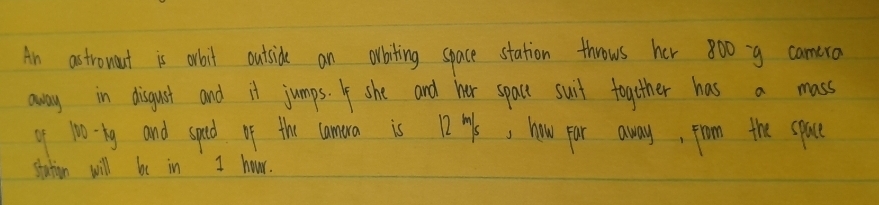 An astronaut is orbit outside an orbiting space station throws her 800-g camera
away in disgust and it jumps. If she and her space suit together has a mass
of 100-kg and speed of the camera is 12 m/s, how far away, from the space
station will be in 1 hour.